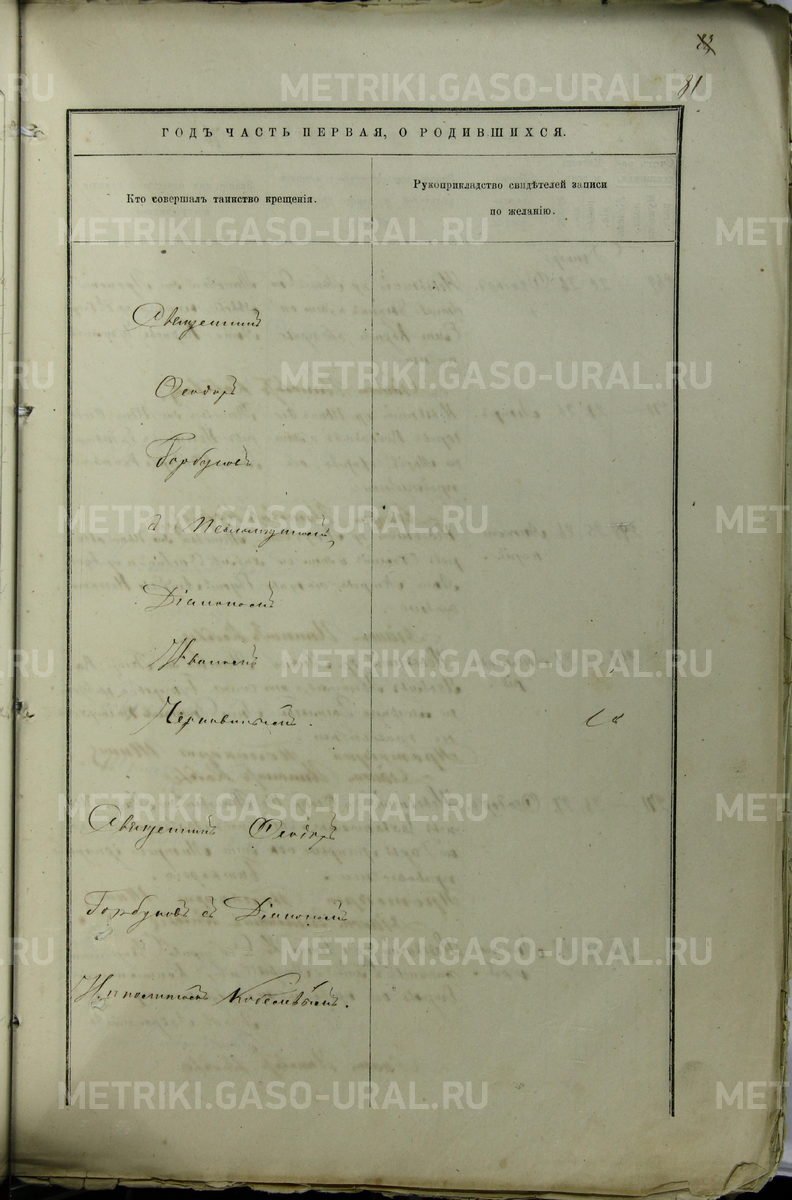 81
ГОДЪ ЧАСТЬ ПЕРВАЯ, О РОДИВШИХСЯ.
Кто совершалъ таинство крещенія.
Рукоприкладство свидѣтелей записи
по желанію.
Священникъ
Ѳеодоръ
Горбуновъ
съ
Діакономъ
Иваномъ
Священникъ Ѳеодоръ
Горбуновъ съ Діакономъ
Ипполитомъ Кобелевымъ.
METRIKI.GASO-URAL.RU